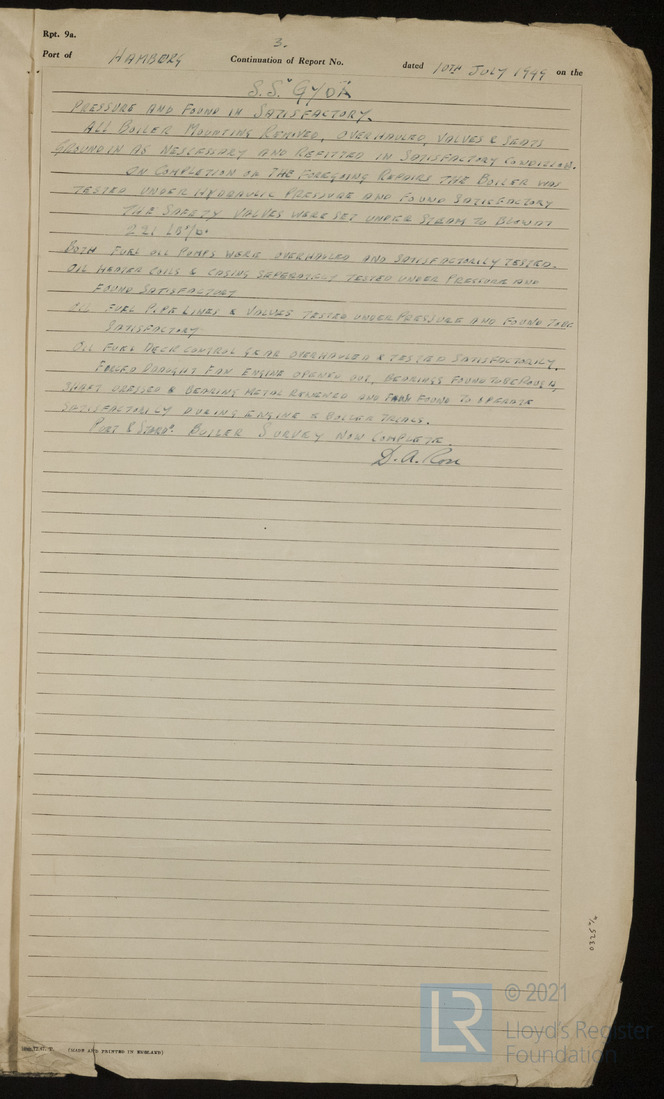 Rpt. 9a.
3.
Port of HAMBURG Continuation of Report No. dated 10TH JULY 1949 on the
S.S. "GYOA"
PRESSURE AND FOUND IN SATISFACTORY.
ALL BOILER MOUNTING REMOVED, OVERHAULED, VALVES & SEATS
GROUND IN AS NESCESSARY AND REFITTED IN SATISFACTORY CONDITION.
ON COMPLETION OF THE FOREGOING REPAIRS THE BOILER WAS
TESTED UNDER HYDRAULIC PRESSURE AND FOUND SATISFACTORY
THE SAFETY VALVES WERE SET UNDER STEAM TO BLOW AT
221 LB/□"
BOTH FUEL OIL PUMPS WERE OVERHAULED AND SATISFACTORILY TESTED.
OIL HEATER COILS & CASING SEPERATELY TESTED UNDER PRESSURE AND
FOUND SATISFACTORY
OIL FUEL PIPE LINES & VALVES TESTED UNDER PRESSURE AND FOUND TO BE
SATISFACTORY
OIL FUEL DECK CONTROL GEAR OVERHAULED & TESTED SATISFACTORILY.
FORCED DRAUGHT FAN ENGINE OPENED OUT, BEARINGS FOUND TO BE ROUGH,
SHAFT DRESSED & BEARING METAL RENEWED AND FAN FOUND TO OPERATE
SATISFACTORILY DURING ENGINE & BOILER TRIALS.
PORT & STARD. BOILER SURVEY NOW COMPLETE.
D. A. Ross
(MADE AND PRINTED IN ENGLAND)
© 2021
LR
Lloyd's Register
Foundation